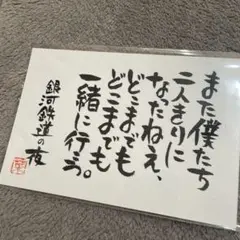 また僕たち
二人きりに
なったねえ、
どこまでも
どこまでも
一緒に行こう。
銀河鉄道の夜